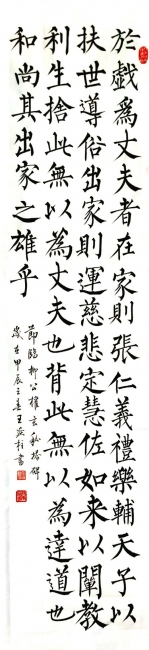 於戯為丈夫者在家則張仁義禮樂輔天子以
扶世導俗出家則運慈悲定慧佐如来以闡教
利生捨此無以為丈夫也背此無以為達道也
和尚其出家之雄乎
節臨柳公權玄秘塔碑
歲在甲辰之春王柱書